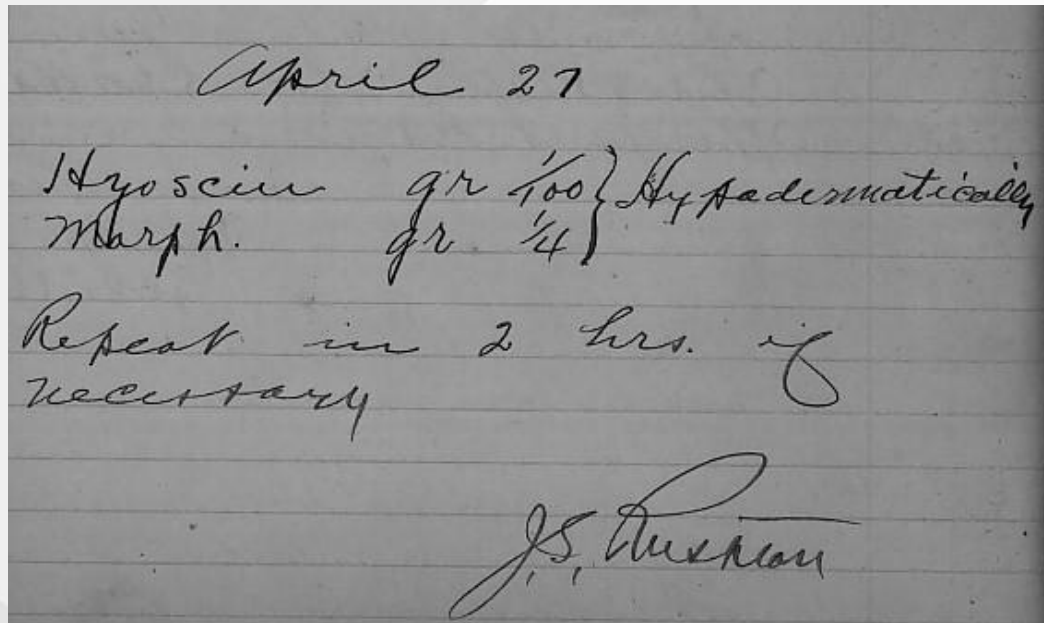 April 27
Hyoscin gr 1/100 } Hypodermatically
Morph. gr. 1/4
Repeat in 2 hrs. if
necessary
J.S.